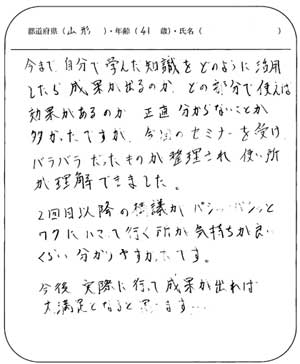 都道府県(山形)・年齢(41 歳)・氏名( )
今まで、自分で学んだ知識をどのように活用
したら成果が出るのか、どの部分で使えば
効果があるのか 正直分からないことが
多かったですが、今回のセミナーを受け、
バラバラだったものが整理され 使い所
が理解できました。
2回目以降の 議が バシッバシッと
ワクに入って行く所が気持ちが良い
くらい分かりやすかったです。
今後 実際に行って成果が出れば
大満足となると思います…